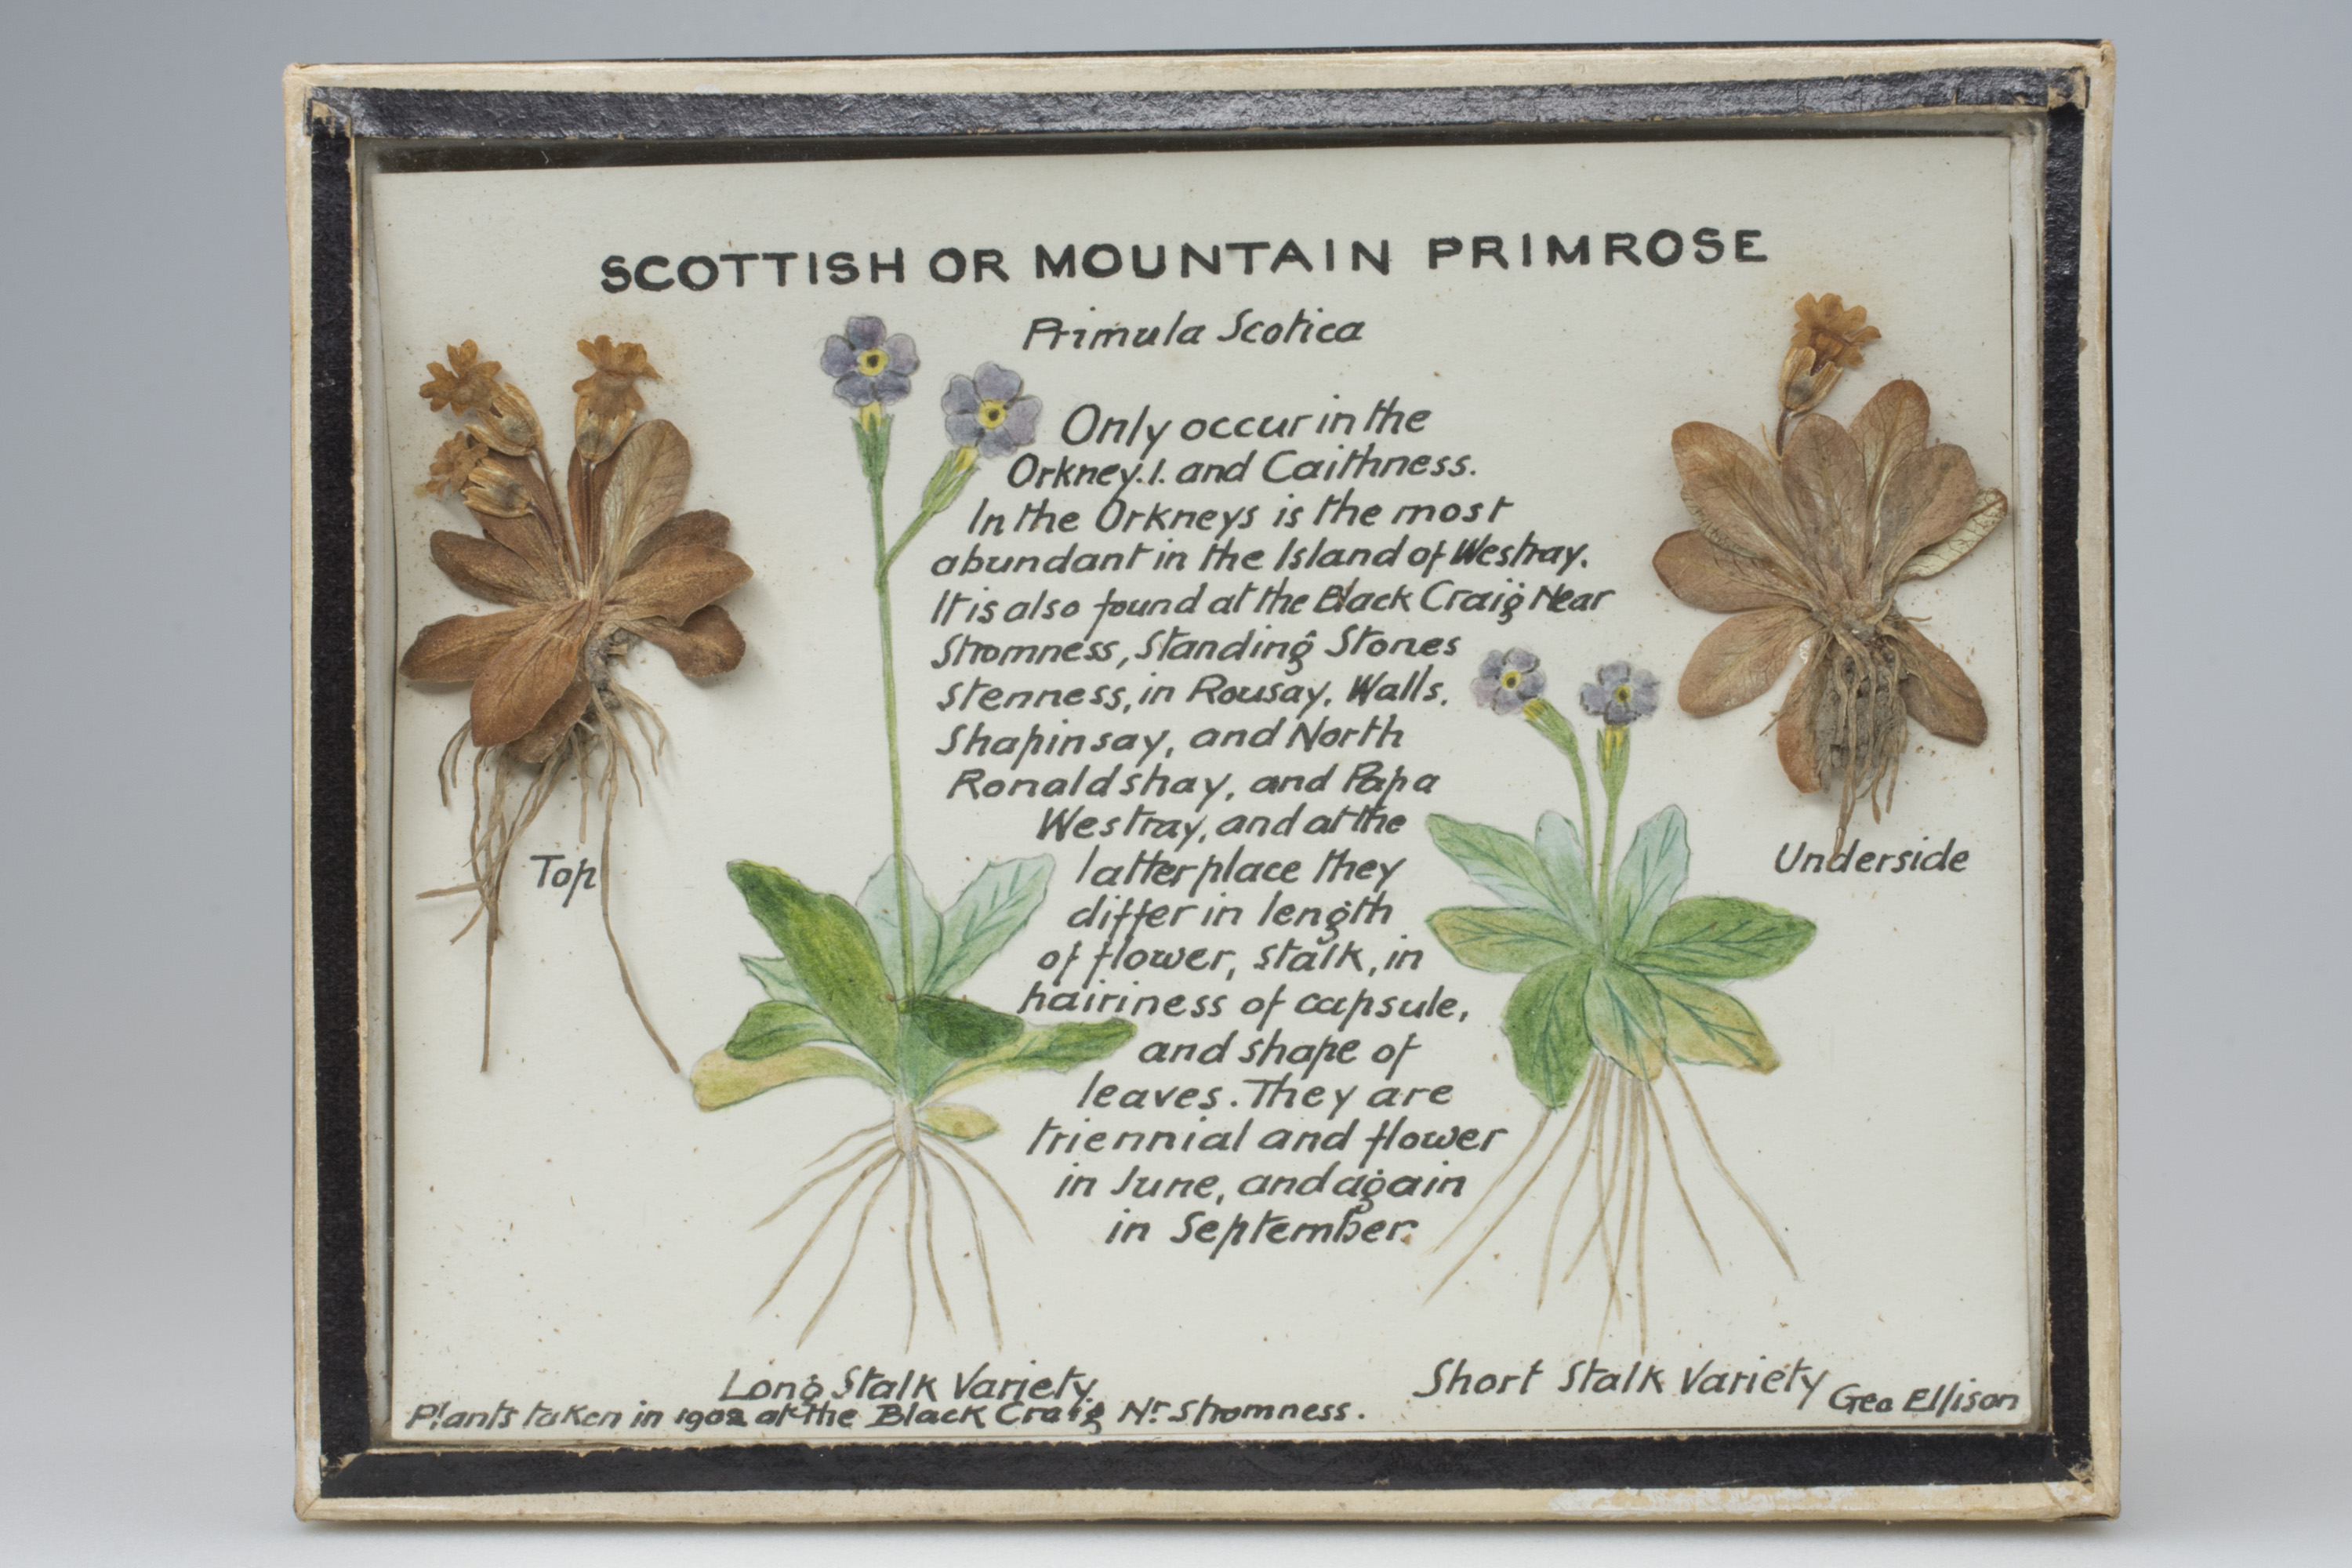 SCOTTISH OR MOUNTAIN PRIMROSE
Primula Scotica
Only occur in the
Orkney.I. and Caithness.
In the Orkneys is the most
abundant in the Island of Westray.
It is also found at the Black Craig Near
Stromness, Standing Stones
stenness, in Rousay, Walls,
Shapinsay, and North
Ronaldshay, and Papa
Westray, and at the
latter place they
differ in length
of flower, stalk, in
hairiness of capsule,
and shape of
leaves. They are
triennial and flower
in June, and again
in September.
Top
Underside
Long Stalk Variety
Short Stalk Variety
Plants taken in 1902 at the Black Craig Nr Stromness.
Geo Ellison